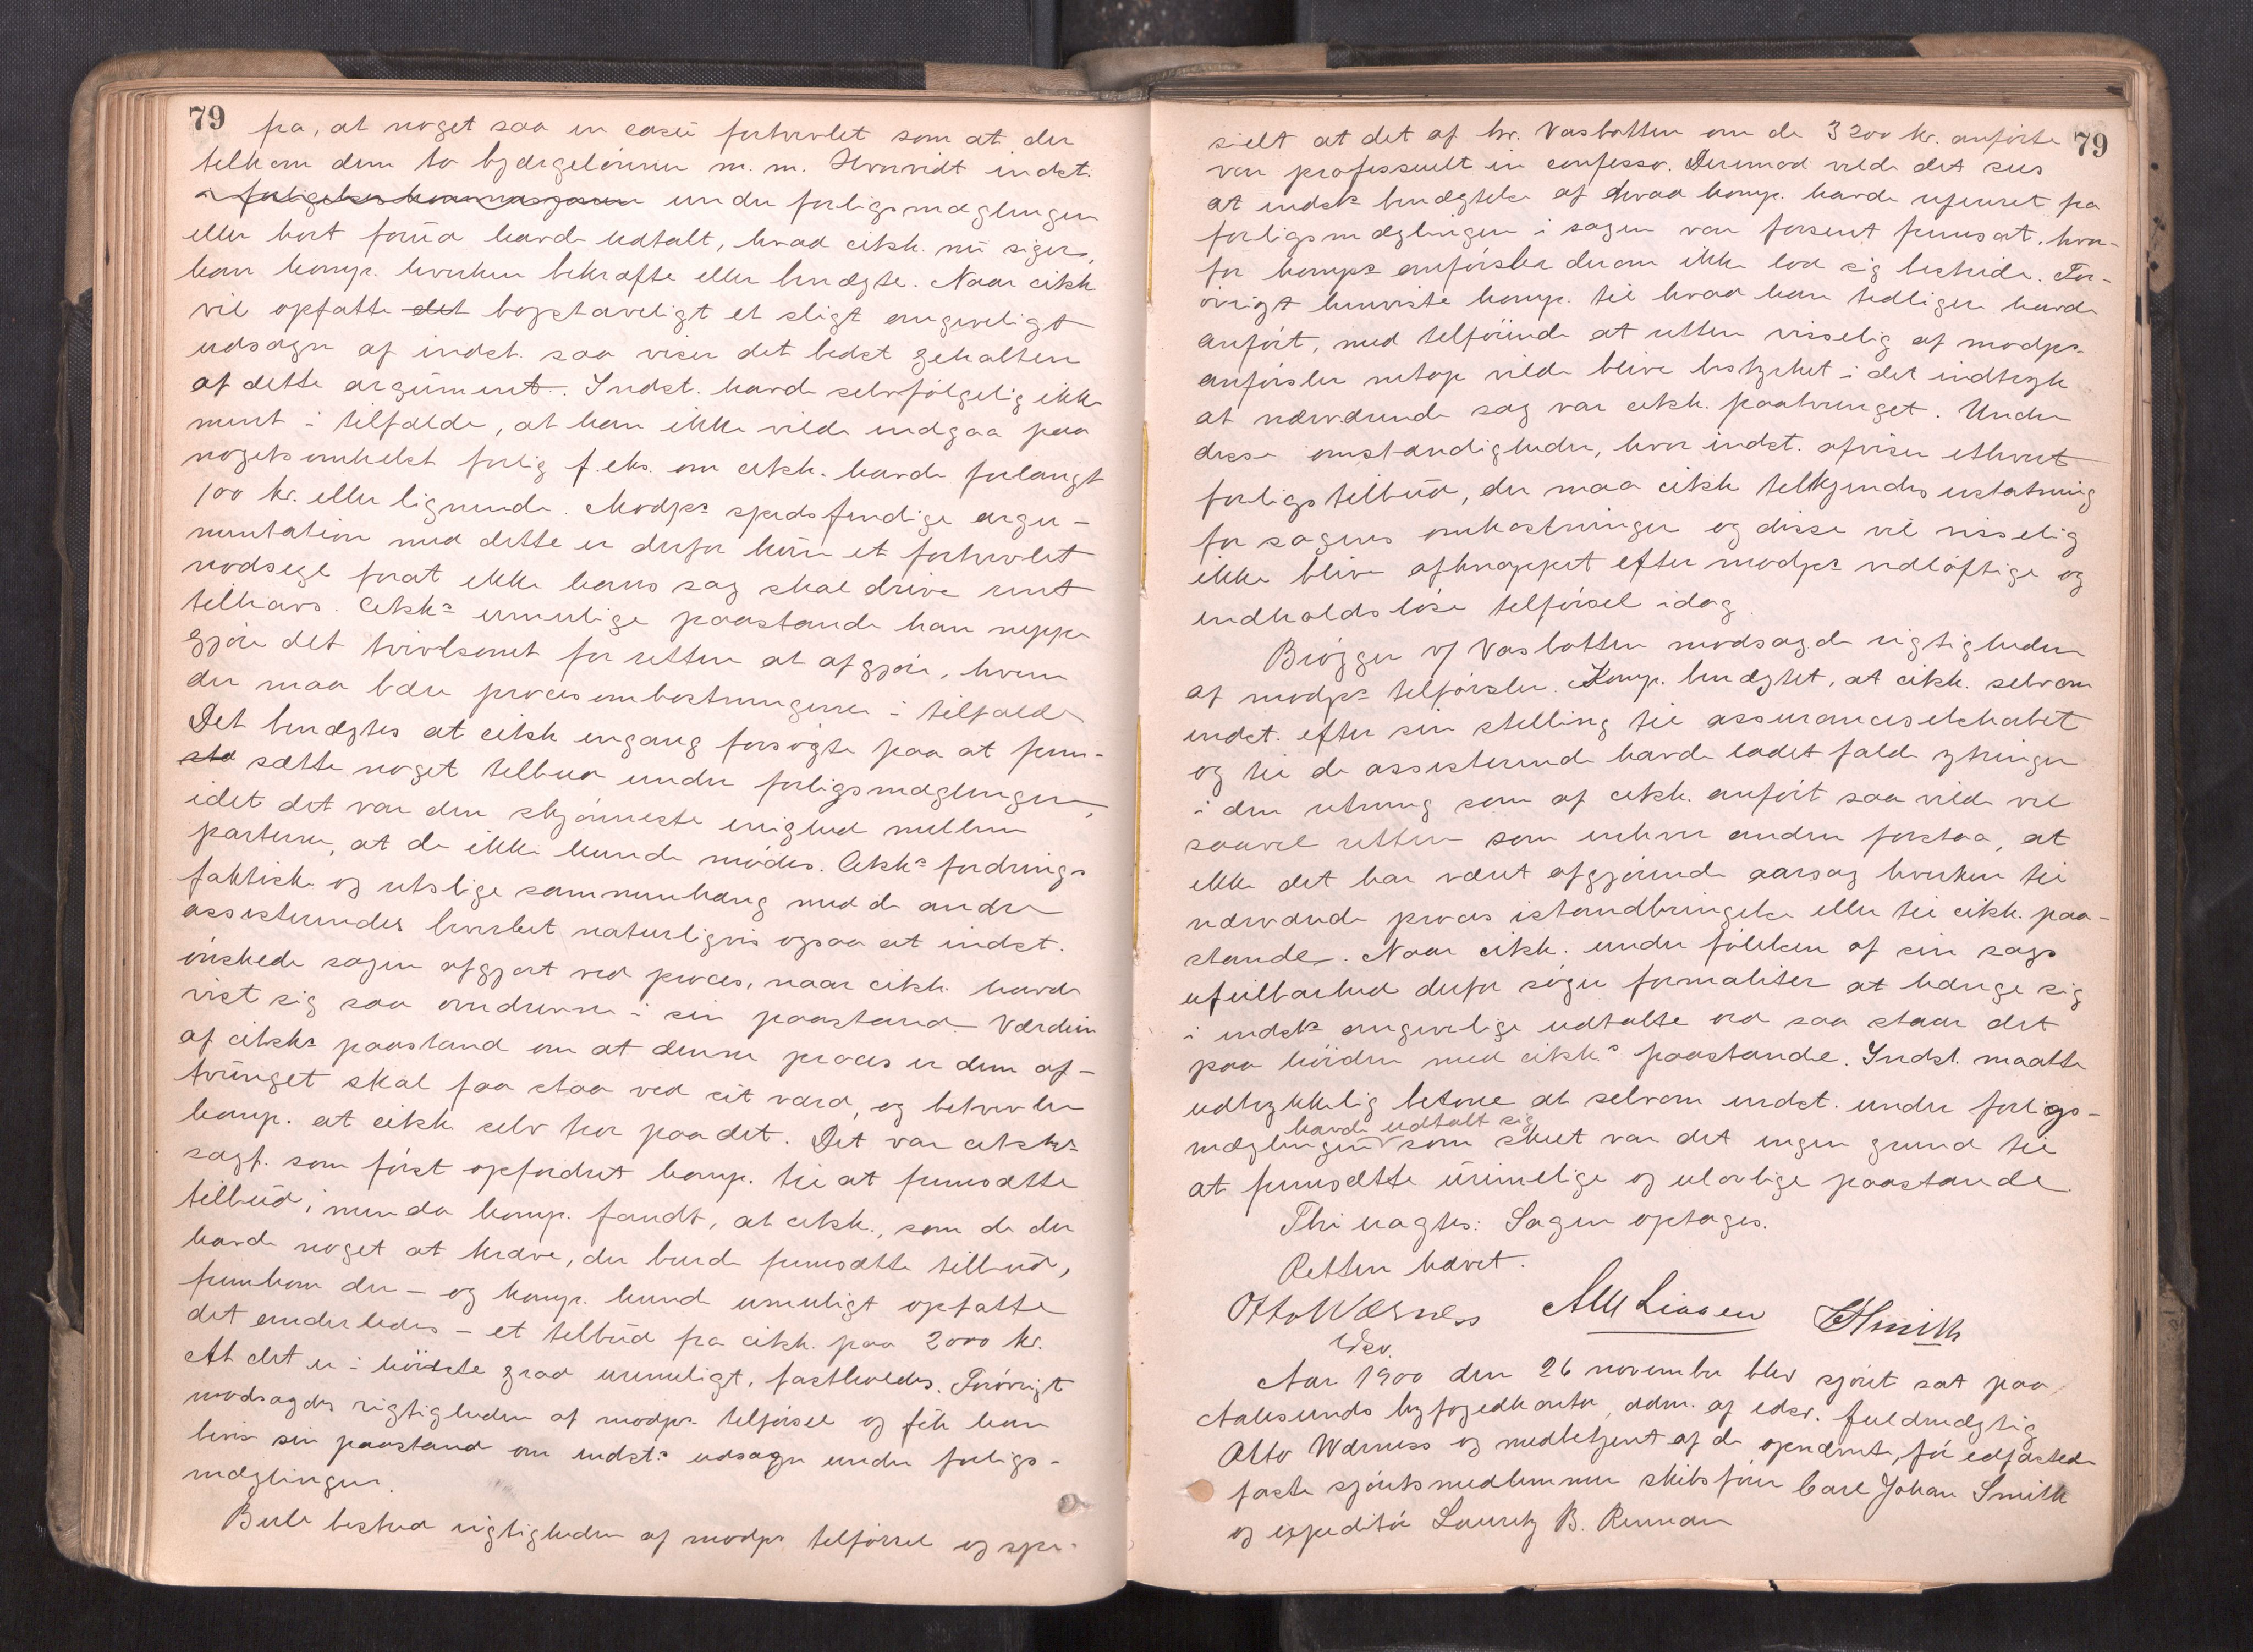 79
fra, at noget saa in casu fortvivlet som at der
tilkom dem to bjergelønner m. m. Hvorvidt indst.
under forligsmæglingen
eller kort forud havde udtalt, hvad citsk. nu siger,
kan komp. hverken bekræfte eller benægte. Naar citsk
vil opfatte det bogstaveligt et sligt angiveligt
udsagn af indst. saa viser det bedst gehalten
af dette argument. Indst. havde selvfølgelig ikke
ment i tilfælde, at han ikke vilde indgaa paa
nogetsomhelst forlig f. eks. om citsk. havde forlangt
100 kr. eller lignende. Modps spidsfindige argu-
mentation med dette er derfor kun et fortvivlet
nødsegl forat ikke hans sag skal drive rent
tilhavs. Citsks umulige paastande kan neppe
gjøre det tvivlsomt for retten at afgjøre, hvem
der maa bære procesomkostningerne i tilfælde
Det benægtes at citsk engang forsøgte paa at frem-
sta sætte noget tilbud under forligsmæglingen,
idet det var den skjønneste enighed mellem
parterne, at de ikke kunde mødes. Citsks fordrings
faktiske og retslige sammenhæng med de andre
assisterendes bevirket naturligvis ogsaa at indst.
ønskede sagen afgjort ved proces, naar citsk. havde
vist sig saa overdreven i sin paastand. Værdien
af citsks paastand om at denne proces er dem af-
tvunget skal faa staa ved sit værd, og betvivler
komp. at citsk selv tror paa det. Det var citsks
sagf. som først opfordret komp. til at fremsætte
tilbud, men da komp. fandt, at citsk., som de der
havde noget at kræve, der burde fremsætte tilbud,
fremkom der – og komp. kunde umuligt opfatte
det anderledes – et tilbud fra citsk. paa 2000 kr.
At det er i høieste grad urimeligt, fastholdes. Forøvrigt
modsagdes rigtigheden af modps tilførsel og fik han
bevise sin paastand om indsts udsagn under forligs-
mæglingen.
Bull bestred rigtigheden af modps tilførsel og spe-
79
sielt at det af hr. Vasbotten om de 3200 kr. anførte
var professuelt in confesso. Derimod vilde det sees
at indsts benægtelse af hvad komp. havde refereret fra
forligsmæglingen i sagen var forsent fremsat, hvor-
for komps anførsler derom ikke lod sig bestride. For-
øvrigt henviste komp. til hvad han tidligere havde
anført, med tilføiende at retten visselig af modps
anførsler netop vilde blive bestyrket i det indtryk
at nærværende sag var citsk. paatvunget. Under
disse omstændigheder, hvor indst. afviser ethvert
forligstilbud, der maa citsk tilkjendes erstatning
for sagens omkostninger og disse vil visselig
ikke blive afknappet efter modps vidløftige og
indholdsløse tilførsel idag.
Brøgger og Vasbotten modsagde rigtigheden
af modps tilførsler. Komp. benægtet, at citsk. selvom
indst. efter sin stilling til assuranceselskabet
og til de assisterende havde ladet falde ytringer
i den retning som af citsk. anført saa vilde vel
saavel retten som enhver anden forstaa, at
ikke det har været afgjørende aarsag hverken til
nærværende proces istandbringelse eller til citsk. paa-
stande. Naar citsk. under følelsen af sin sags
ufeilbarhed derfor søger formaliter at hænge sig
i indsts angivelige udtalte ord saa staar det
paa høiden med citsks paastande. Indst. maatte
udtrykkelig betone at selvom indst. under forligs-
havde udtalt sig
mæglingen som skeet var det ingen grund til
at fremsætte urimelige og ulovlige paastande
Thi nagtes: Sagen optages.
Retten hævet.
Otto Wærness AM Liaaen CJSmith
edsv.
Aar 1900 den 26 november blev sjøret sat paa
Aalesunds byfogedkontor, adm. af edsv. fuldmægtig
Otto Wærness og medbetjent af de opnævnte, før edfæstede
faste sjøretsmedlemmer skibsfører Carl Johan Smith
og expeditør Lauritz B. Rennan